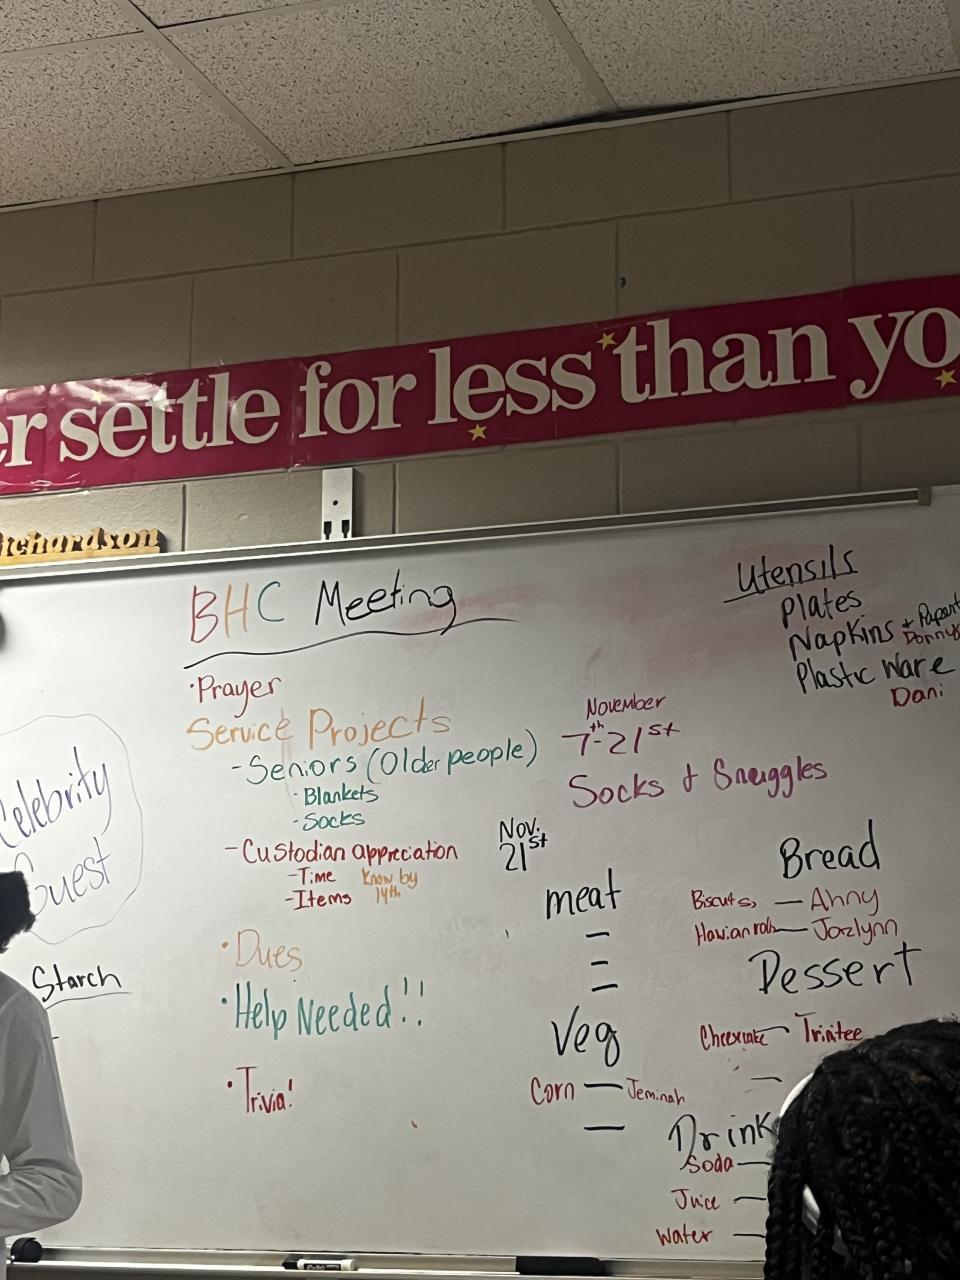 er settle for less than yo
ichardson
BHC Meeting
·Prayer
Service Projects
-Seniors (Older people)
·Blankets
-Socks
-Custodian appreciation
-Time Know by
-Items 14th
·Dues
·Help Needed!!
·Trivia!
Celebrity
Guest
Starch
November
7th-21st
Socks & Snuggles
Nov.
21st
meat
Veg
Corn — Jeminah
Utensils
Plates
Napkins + Paper
Plastic Ware
Dani
Bread
Biscuits, — Ahny
Hawian rolls — Jazlynn
Dessert
Cheesecake — Trintee
Drink
Soda —
Juice —
Water —